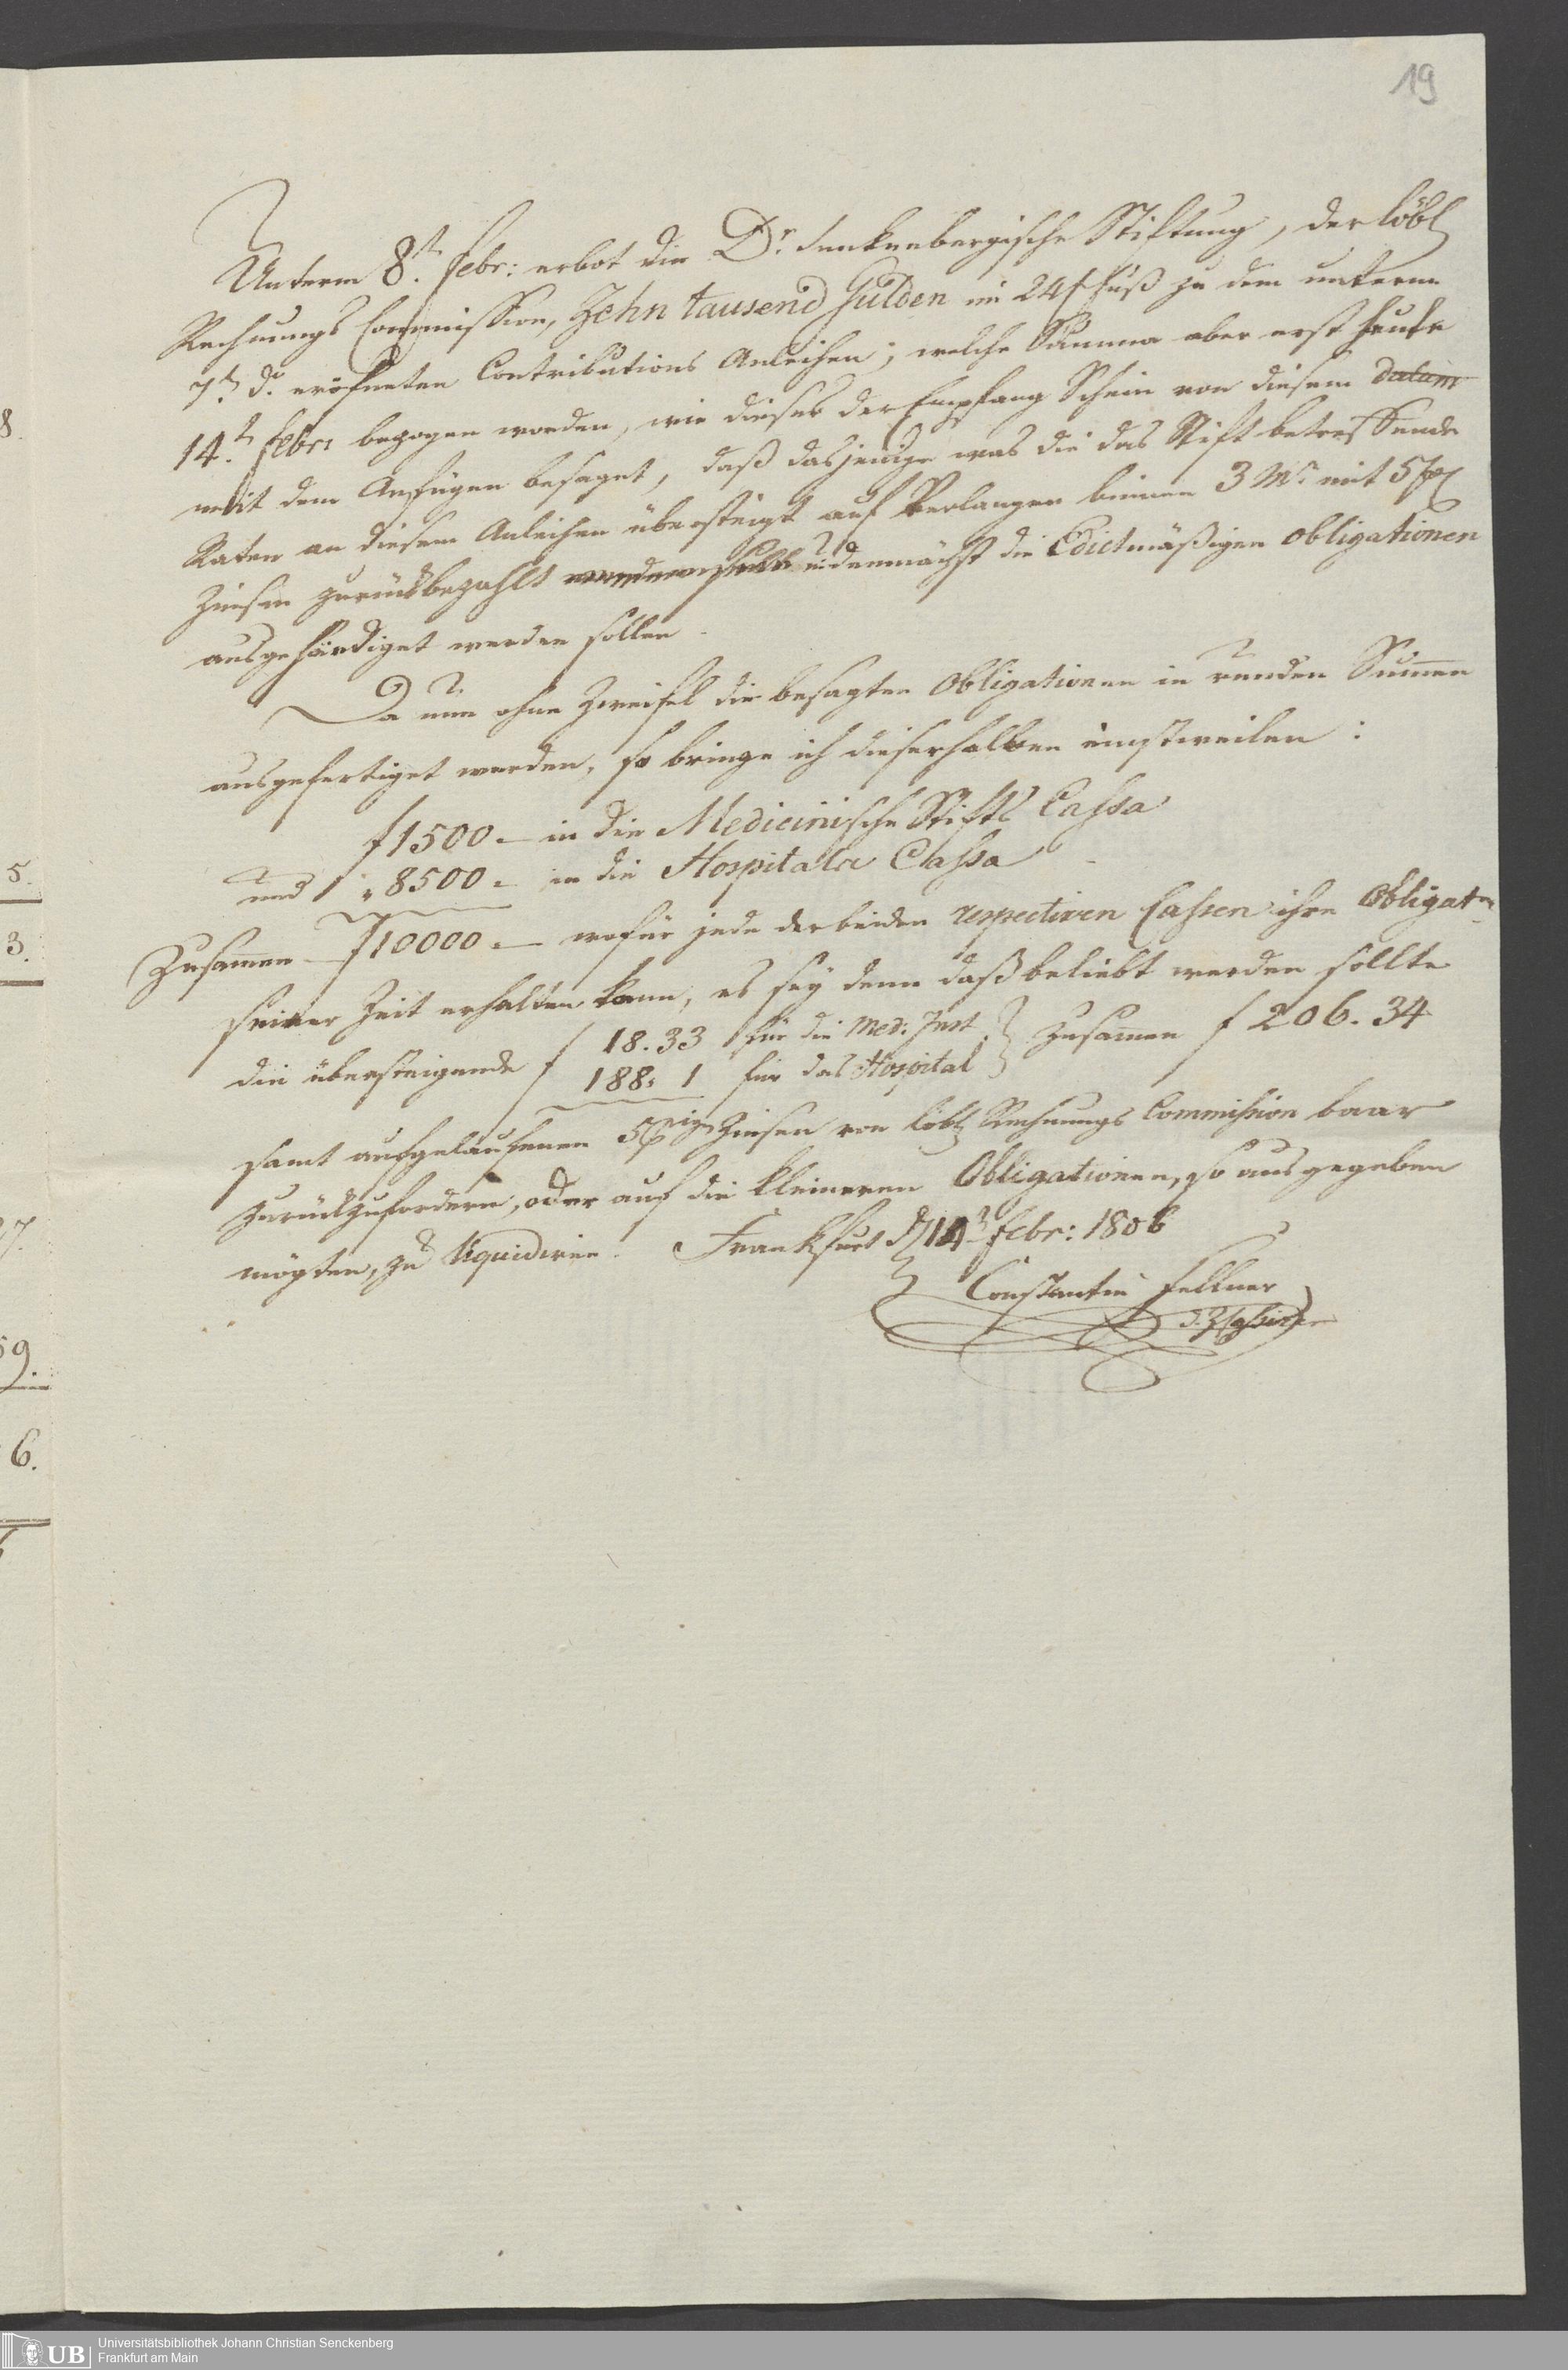 19
Unterm 8t. Febr: erbot die Dr. Senkenbergische Stiftung, der löbl
Rechnungs Commission, Zehn tausend Gulden im 24f Fuß zu dem unterm
7t. do. eröfneten Contributions Anleihen; welche Summa aber erst heute
14.t Febr: bezogen worden, wie dieses der Empfang Schein von diesem datum
mit dem Anfügen besaget, daß dasjenige was die das Stift betreffende
Raten an diesem Anleihen übersteigt auf Verlangen binnen 3 Mt. mit 5 pC
Zinsen zurückbezahlt demnächst die Edictmäßigen Obligationen
ausgehändiget werden sollen.
Da nun ohne Zweifel die besagten Obligationen in runden Summen
ausgefertiget werden, so bringe ich dieserhalben einstweilen:
f 1500 . — in die Medicinische Stifts Cassa
und " 8500 . — in die Hospitals Cassa
Zusammen f 10000 . — wofür jede der beiden respectiven Cassen ihre Obligatn
seiner Zeit erhalten kann, es sey denn daß beliebt werden sollte
die übersteigende f 18. 33 für die Med: Inst
188: 1 für das Hospital
Zusammen f 206. 34
samt aufgelaufenen 5 pCigen Zinsen von löbl Rechnungs Commission baar
zurückzufordern, oder auf die kleineren Obligationen, so ausgegeben
mögten, zu liquidiren. Frankfurt d 14 Febr: 1806
Constantin Fellner
d. Z. Cassirer
8.
5.
3.
7.
59.
6.
UB Universitätsbibliothek Johann Christian Senckenberg
Frankfurt am Main